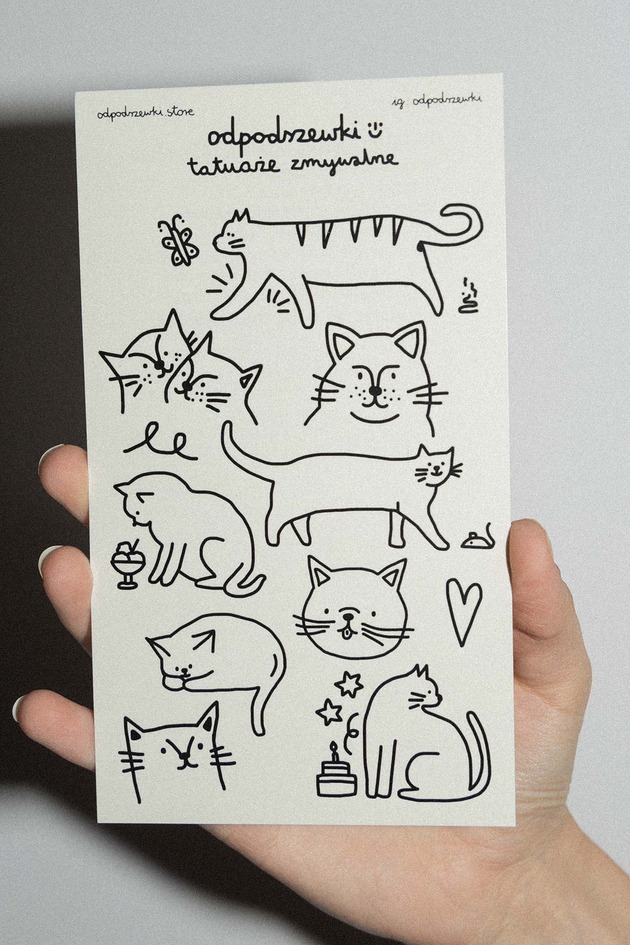 odpodszewki.store
ig odpodszewki
odpodszewki
tatuaże zmywalne